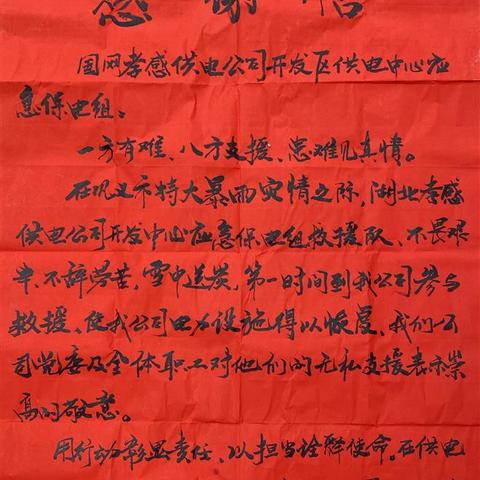 感谢信
国网孝感供电公司开发区供电中心应
急保电组：
一方有难、八方支援、患难见真情。
在巩义市特大暴雨灾情之际，湖北孝感
供电公司开发中心应急保电组救援队、不畏艰
辛、不辞劳苦，雪中送炭，第一时间到我公司参与
救援、使我公司电力设施得以恢复、我们公
司党委及全体职工对他们的无私支援表示崇
高的敬意。
用行动彰显责任、以担当诠释使命。在供电